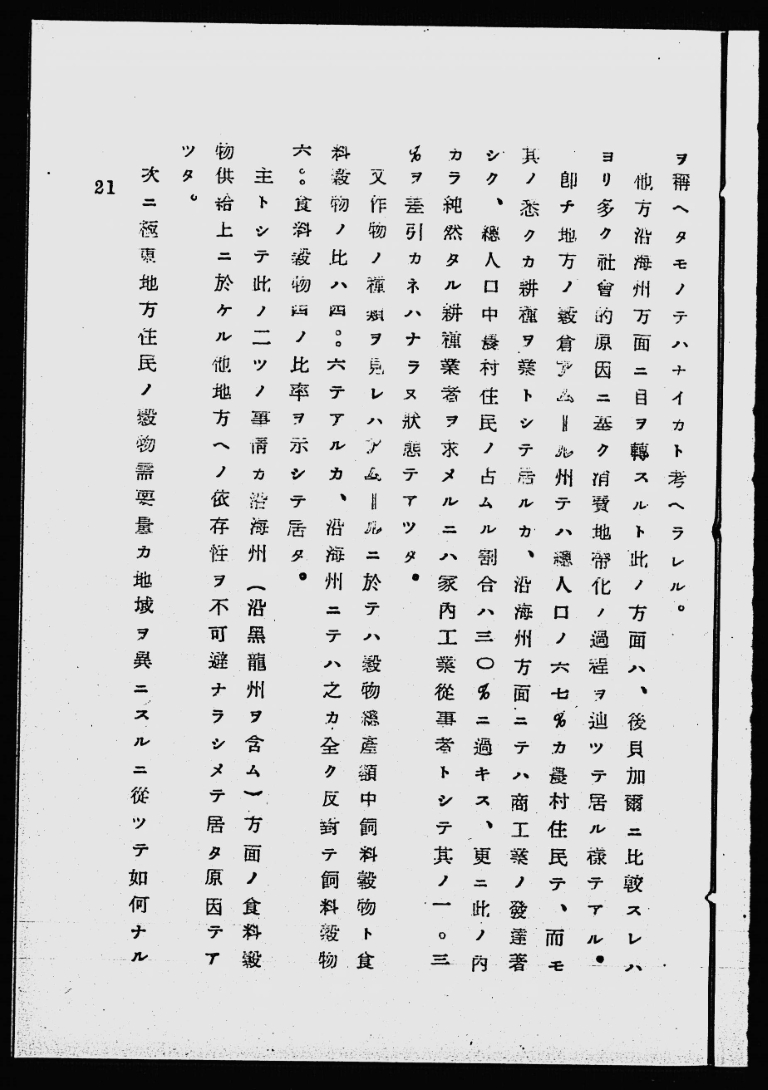 ヲ稱ヘタモノテハナイカト考ヘラレル。
他方沿海州方面ニ目ヲ轉スルト此ノ方面ハ、後貝加爾ニ比較スレハ
ヨリ多ク社會的原因ニ基ク消費地帶化ノ過程ヲ辿ツテ居ル樣テアル。
卽チ地方ノ穀倉アムール州テハ總人口ノ六七%カ農村住民テ、而モ
其ノ悉クカ耕種ヲ業トシテ居ルカ、沿海州方面ニテハ商工業ノ發達著
シク、總人口中農村住民ノ占ムル割合ハ三〇%ニ過キス、更ニ此ノ內
カラ純然タル耕種業者ヲ求メルニハ家內工業從事者トシテ其ノ一〇三
%ヲ差引カネハナラヌ狀態テアツタ。
又作物ノ種類ヲ見レハアムールニ於テハ穀物總產額中飼料穀物ト食
料穀物ノ比ハ四〇。六テアルカ、沿海州ニテハ之カ全ク反對テ飼料穀物
六〇。食料穀物四ノ比率ヲ示シテ居タ。
主トシテ此ノ二ツノ事情カ沿海州(沿黑龍州ヲ含ム)方面ノ食料穀
物供給上ニ於ケル他地方ヘノ依存性ヲ不可避ナラシメテ居タ原因テア
ツタ。
次ニ極東地方住民ノ穀物需要量カ地域ヲ異ニスルニ從ツテ如何ナル
21